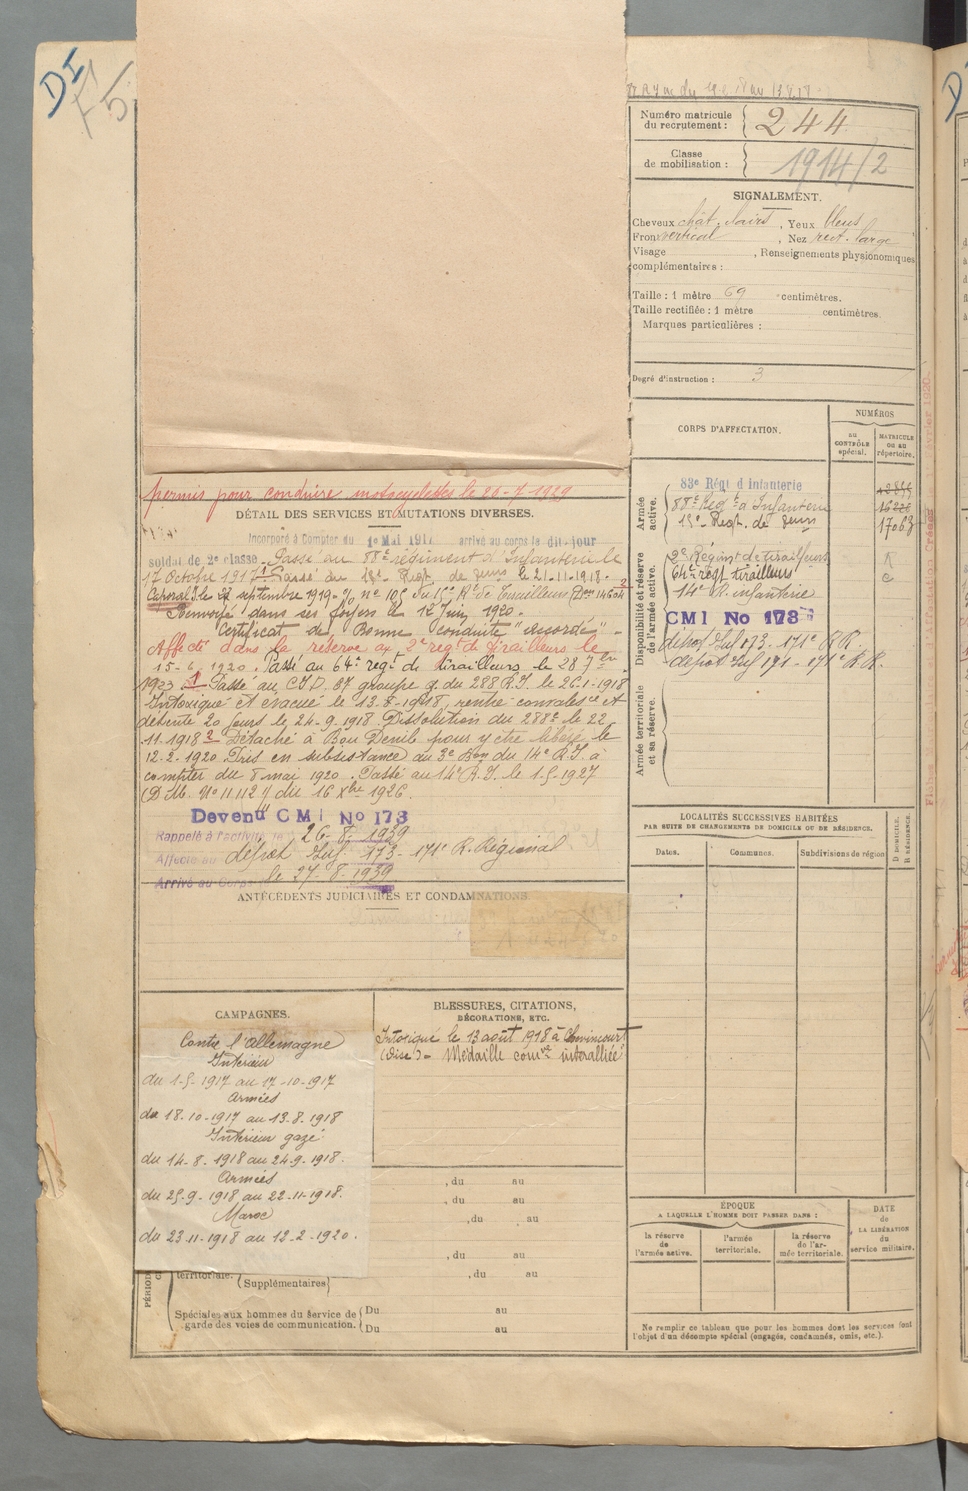 DI
5
Numéro matricule
du recrutement : 244
Classe
de mobilisation : 1914/2
SIGNALEMENT.
Cheveux chât. clairs, Yeux bleus
Front vertical, Nez rect. large
Visage , Renseignements physionomiques
complémentaires :
Taille : 1 mètre 69 centimètres.
Taille rectifiée : 1 mètre centimètres.
Marques particulières :
Degré d'instruction : 3
CORPS D'AFFECTATION.
NUMÉROS
au
CONTRÔLE
spécial.
MATRICULE
ou au
répertoire.
Armée
active.
83e Régt d'infanterie
88e Régt d'Infanterie
15e Regt. de
17063
Disponibilité et réserve
de l'armée active.
2e Régimt de tirailleurs
64e régt tirailleurs
14e R. infanterie
CMI No 173
dépôt Inf 173 - 171e R.R.
dépôt Inf 171 - 171e R.R.
Armée territoriale
et sa réserve.
LOCALITÉS SUCCESSIVES HABITÉES
PAR SUITE DE CHANGEMENTS DE DOMICILE OU DE RÉSIDENCE.
Dates.
Communes.
Subdivisions de région
D DOMICILE.
R RÉSIDENCE.
ÉPOQUE
A LAQUELLE L'HOMME DOIT PASSER DANS :
la réserve
de
l'armée active.
l'armée
territoriale.
la réserve
de l'ar-
mée territoriale.
DATE
de
LA LIBÉRATION
du
service militaire.
Ne remplir ce tableau que pour les hommes dont les services font
l'objet d'un décompte spécial (engagés, condamnés, omis, etc.).
permis pour conduire motocyclettes le 26-7-1929
DÉTAIL DES SERVICES ET MUTATIONS DIVERSES.
Incorporé à Compter du 1e Mai 1917 arrivé au corps le dit jour
soldat de 2e classe. Passé au 88e régiment d'Infanterie le
17 Octobre 1917. Passé au 15e Regt. de le 21-11-1918.
Caporal le septembre 1919. No 105 du 15e Rt de Tirailleurs
Renvoyé dans ses foyers le 12 Juin 1920.
Certificat de Bonne conduite "accordé"
Affecté dans la réserve au 2e regt de tirailleurs le
15-6-1920. Passé au 64e regt de tirailleurs le 28 7bre
1923 1 Passé au C.I.D. 87 groupe q. du 288 R.I. le 26-1-1918
Intoxiqué et évacué le 13-8-1918, rentré convalesce et
détente 20 jours le 24-9-1918. Dissolution du 288e le 22
11-1918 2 Détaché à Bou Denib pour y être libéré le
12-2-1920. Pris en subsistance au 3e Bon du 14e R.I. à
compter du 8 mai 1920. Passé au 14e R.I. le 1-5-1927
(D.M. No 11.112 du 16 Xbre 1926.
Devenu CMI No 173
Rappelé à l'activité le 26-8-1939
Affecté au dépôt Inf 173 - 171e R. Régional
Arrivé au Corps le 27-8-1939
ANTÉCÉDENTS JUDICIAIRES ET CONDAMNATIONS
CAMPAGNES.
Contre l'Allemagne
Intérieur
du 1-5-1917 au 17-10-1917
Armées
du 18-10-1917 au 13-8-1918
Intérieur gazé
du 14-8-1918 au 24-9-1918.
Armées
du 25-9-1918 au 22-11-1918.
Maroc
du 23-11-1918 au 12-2-1920.
BLESSURES, CITATIONS,
DÉCORATIONS, ETC.
Intoxiqué le 13 août 1918 à Chevincourt
(Oise) - Médaille comve interalliée
, du au
, du au
, du au
, du au
territoriale. (Supplémentaires , du au
Spéciales aux hommes du service de (Du au
garde des voies de communication. (Du au